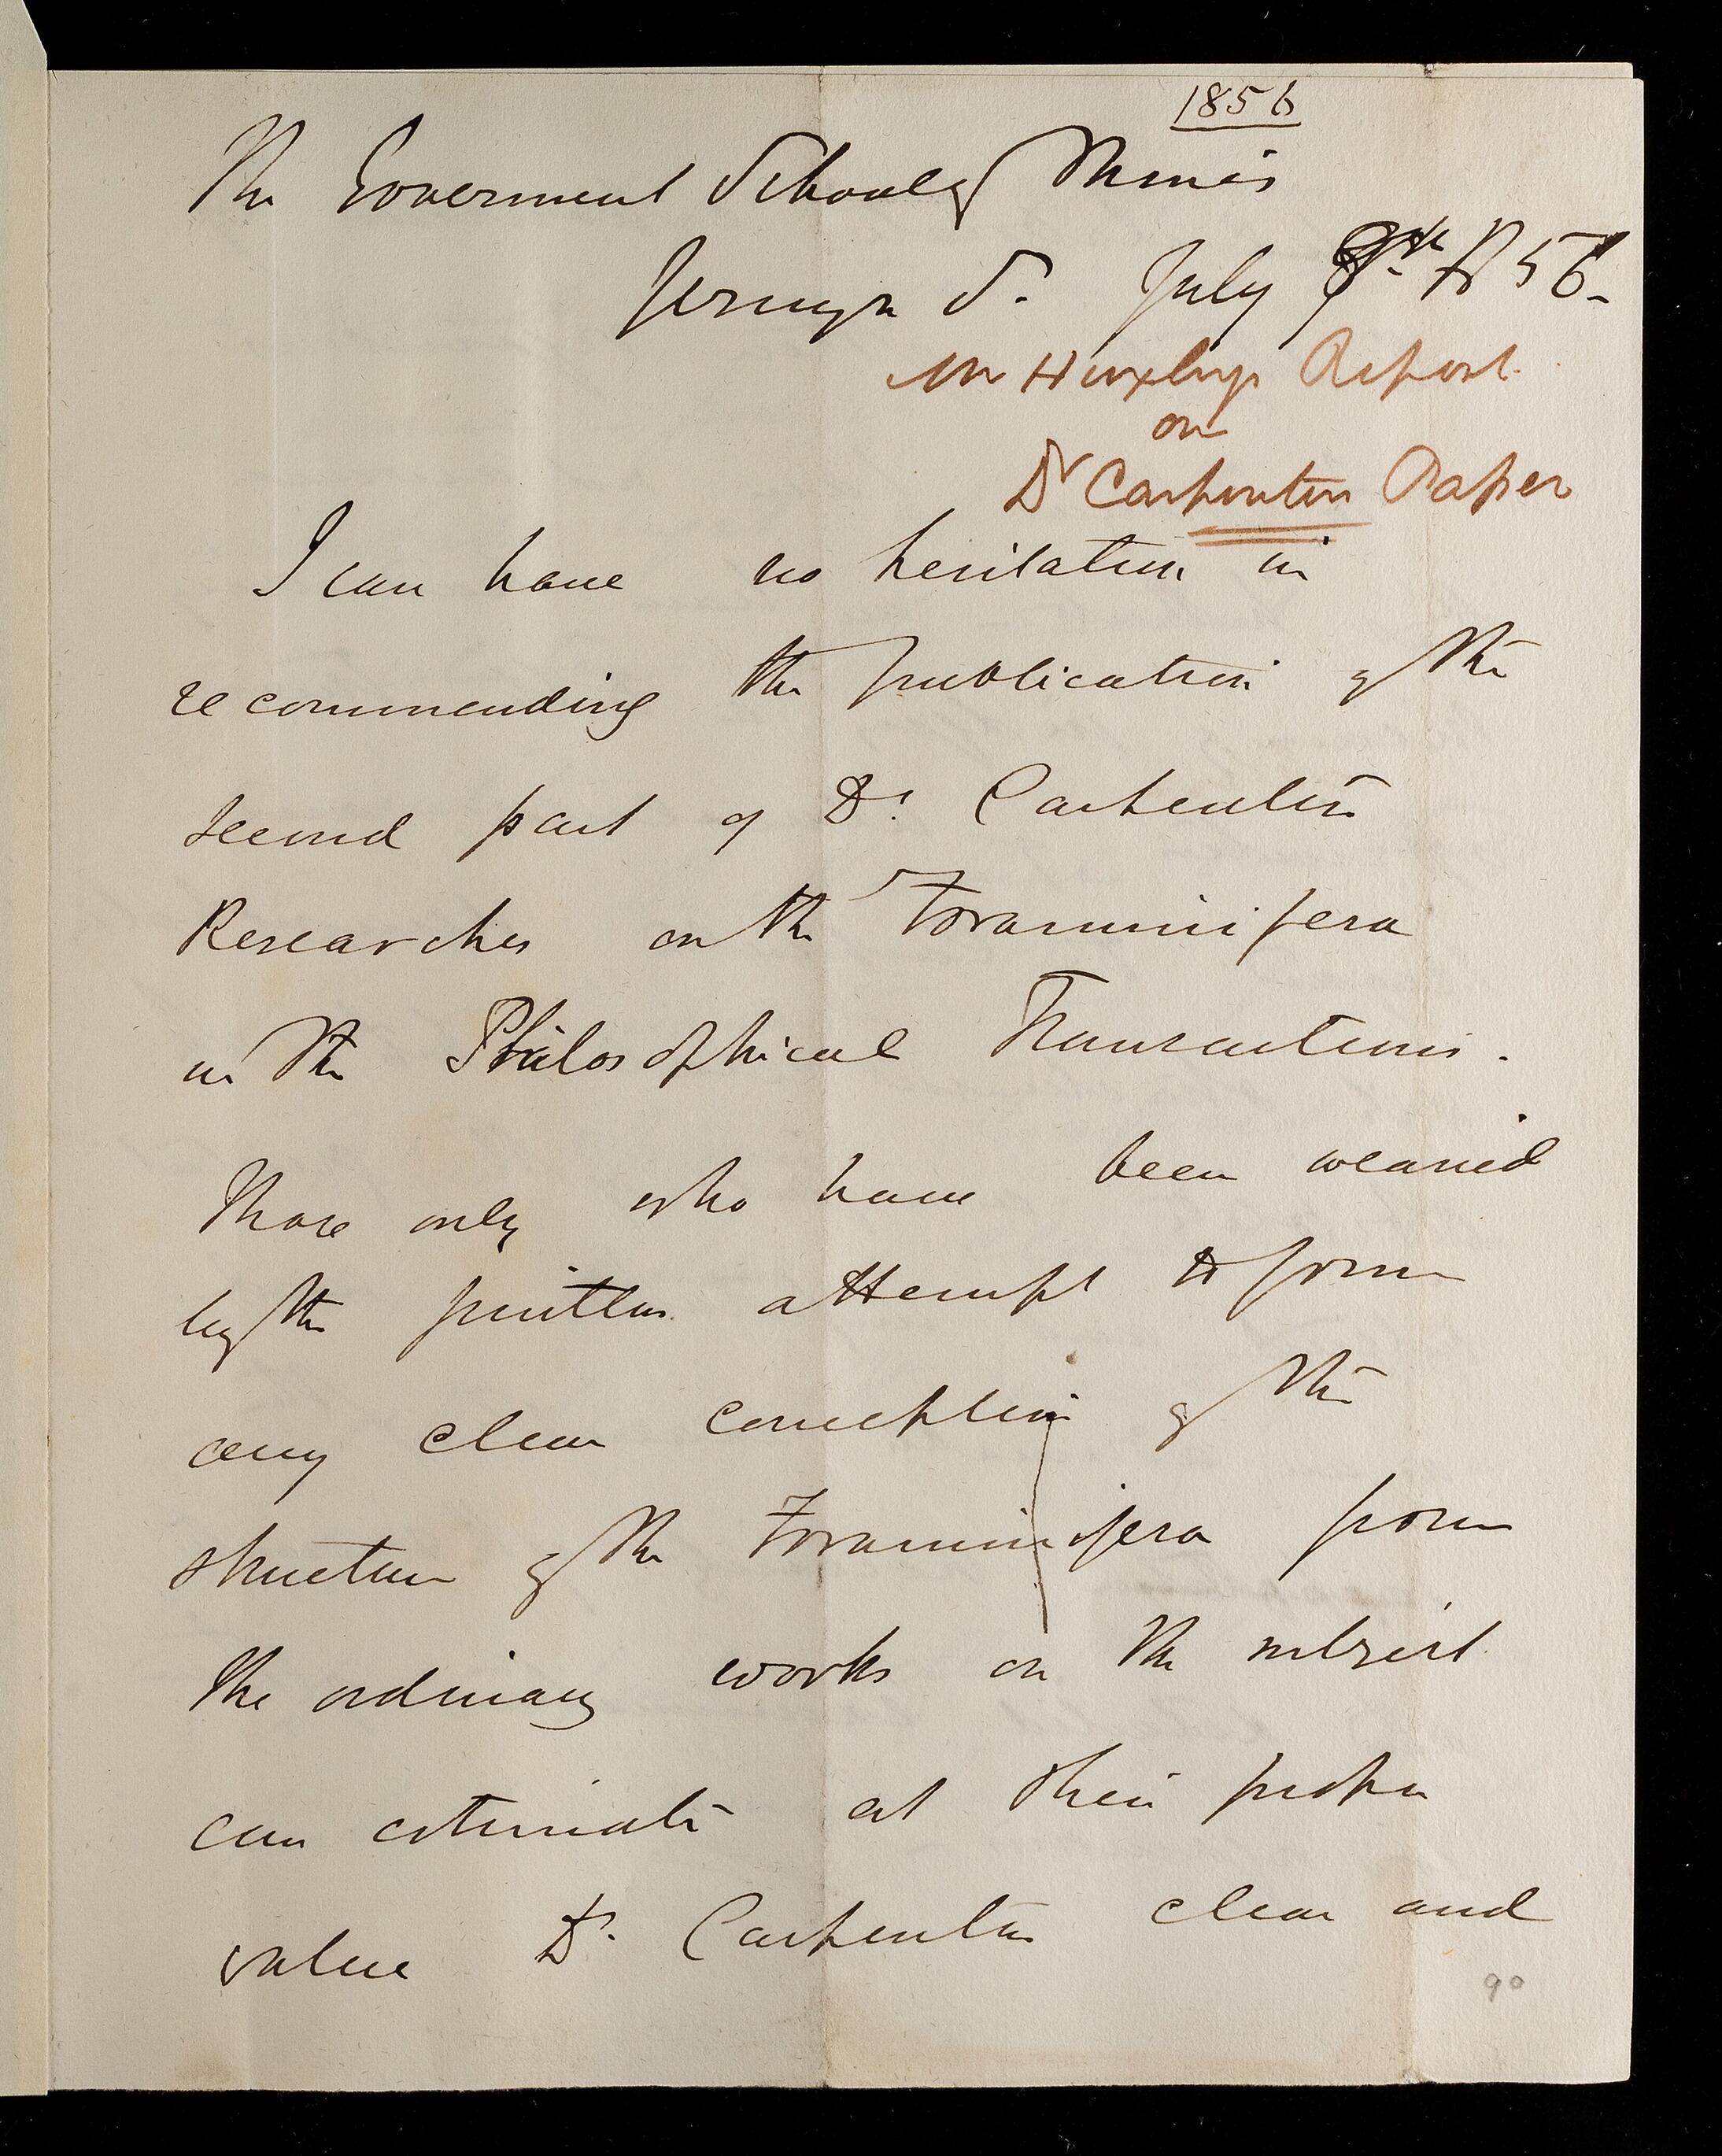 1856
The Government School of Mines
Jermyn St. July 1856.
Mr Huxley's Report
on
Dr Carpenters Paper
I can have no hesitation in
recommending the publication of the
second part of Dr. Carpenters
Researches on the Foraminifera
in the Philosophical Transactions.
Those only who have been wearied
by the fruitless attempt to form
any clear conception of the
structure of the Foraminifera from
the ordinary works on the subject
can estimate at their proper
value Dr. Carpenters clear and
90